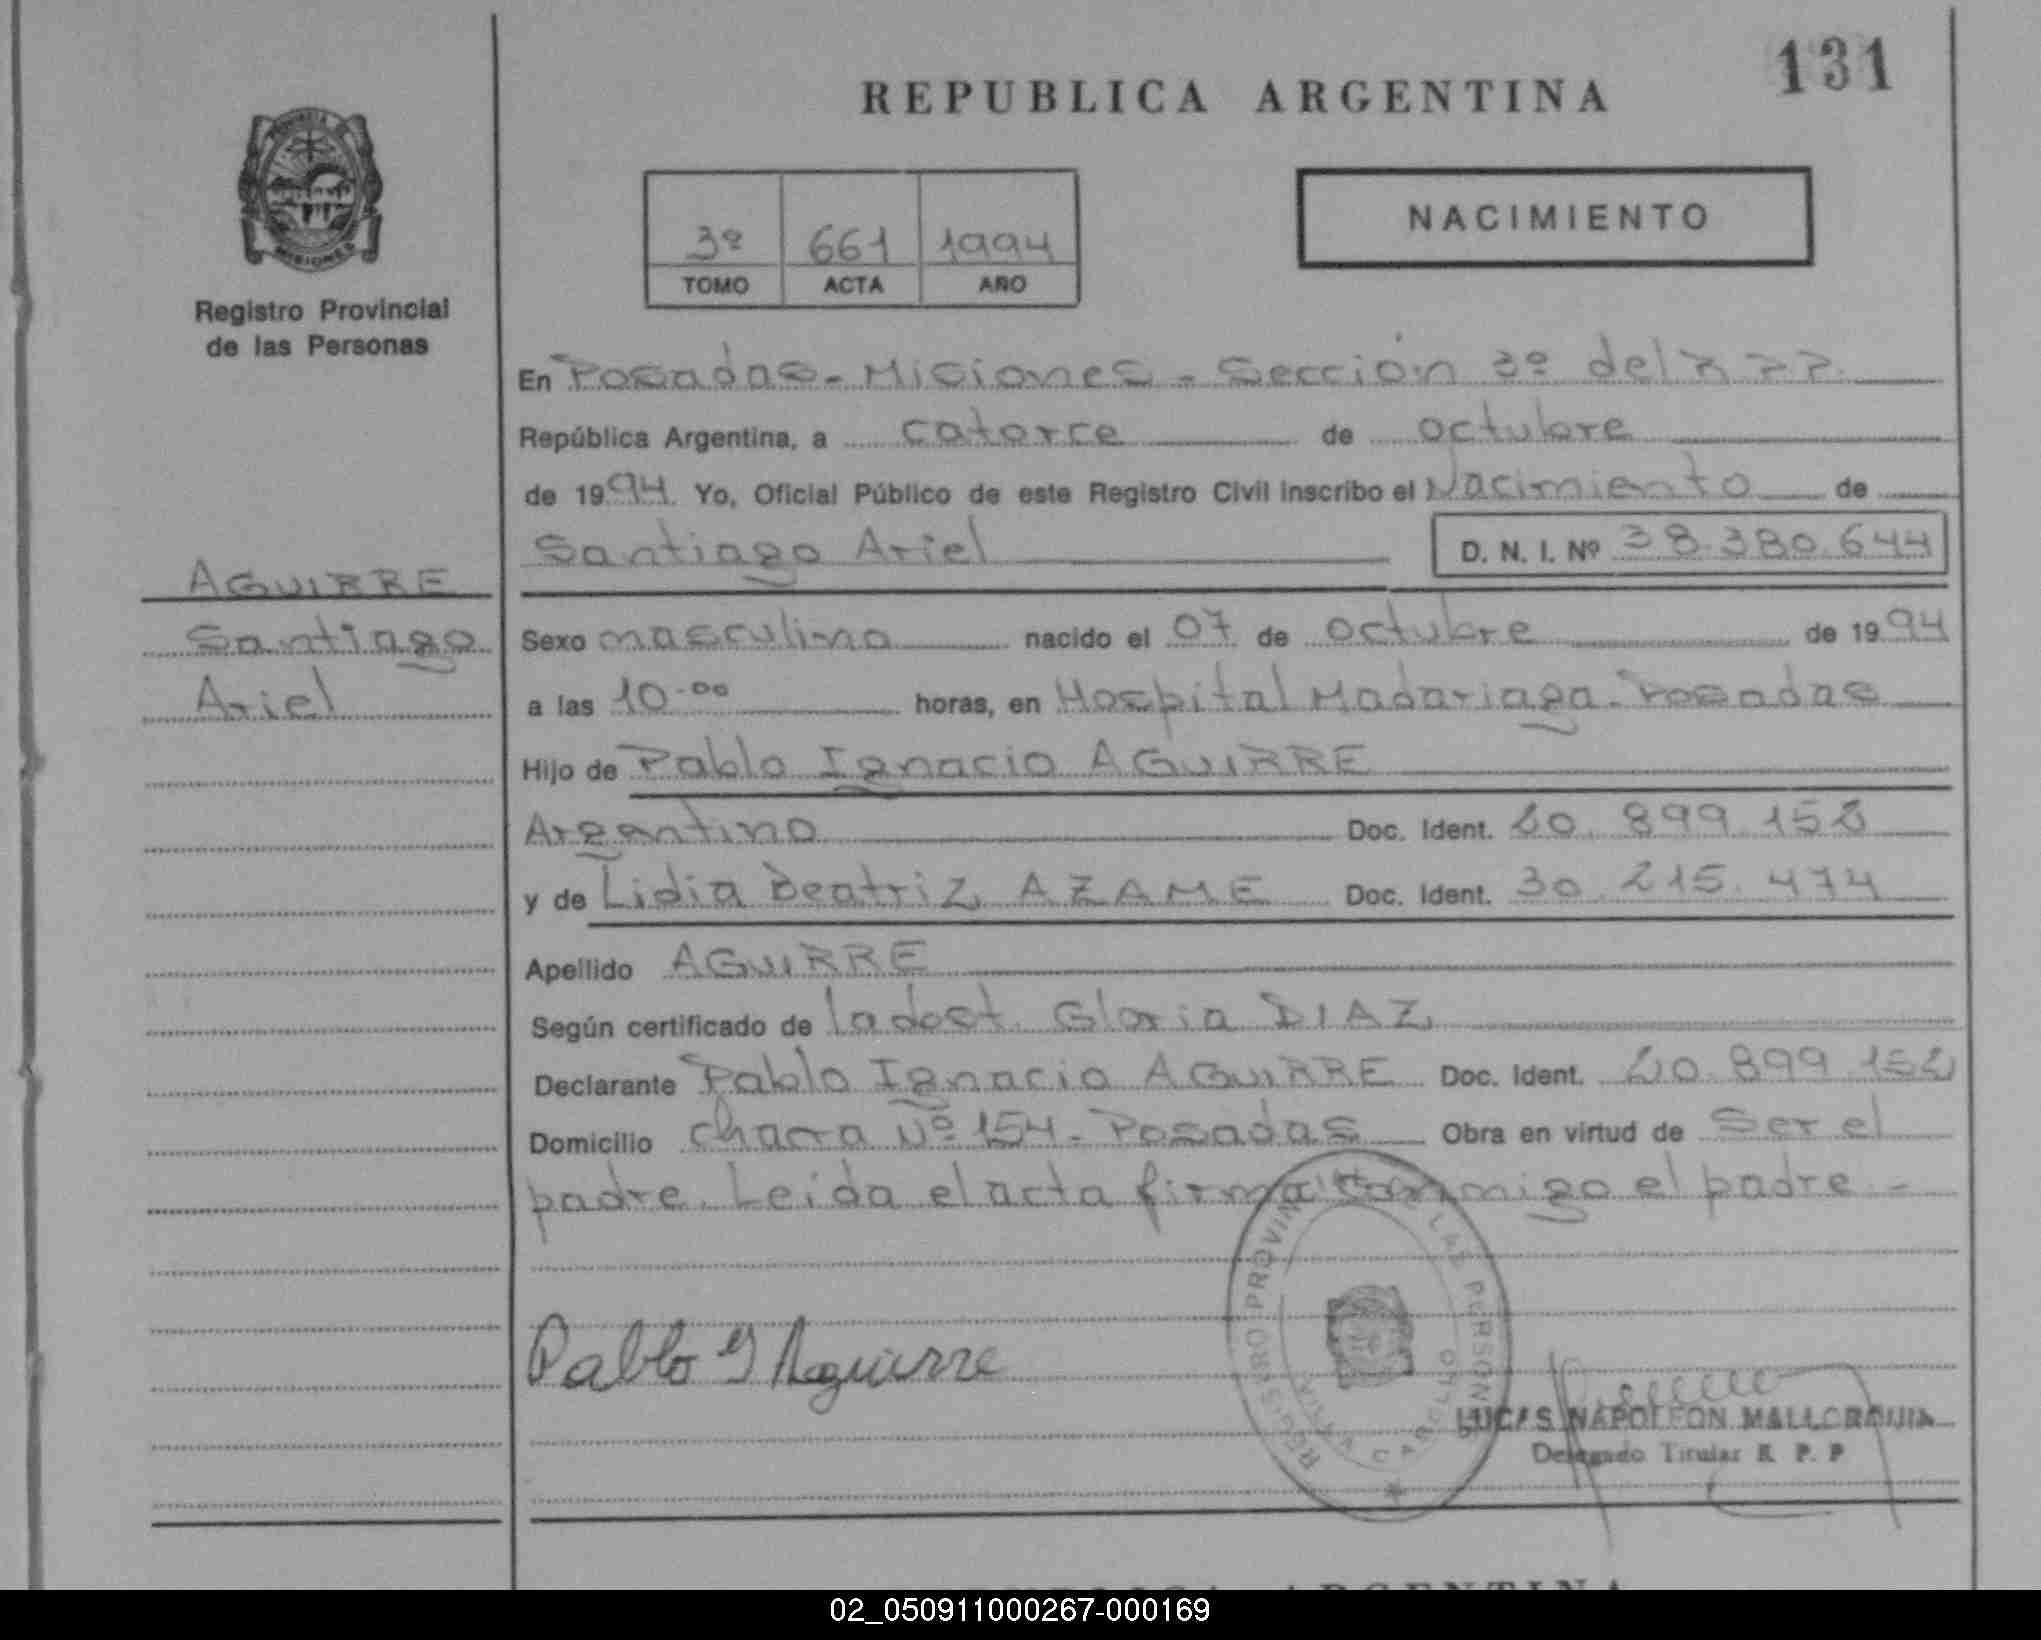 131
REPUBLICA ARGENTINA
NACIMIENTO
3º 661 1994
TOMO ACTA AÑO
PROVINCIA DE
MISIONES
Registro Provincial
de las Personas
En Posadas - Misiones - Sección 3º del R.P.P.
República Argentina, a catorce de octubre
de 1994. Yo, Oficial Público de este Registro Civil inscribo el Nacimiento de
Santiago Ariel D. N. I. Nº 38.380.644
AGUIRRE
Santiago
Ariel
Sexo masculino nacido el 07 de octubre de 1994
a las 10.00 horas, en Hospital Madariaga - Posadas
Hijo de Pablo Ignacio AGUIRRE
Argentino Doc. Ident. 20.899.152
y de Lidia Beatriz AZAME Doc. Ident. 30.215.474
Apellido AGUIRRE
Según certificado de la dost. Gloria DIAZ
Declarante Pablo Ignacio AGUIRRE Doc. Ident. 20.899.152
Domicilio chacra Nº 154 - Posadas Obra en virtud de Ser el
padre. Leida el acta firma conmigo el padre -
REGISTRO PROVINCIAL DE LAS PERSONAS
VILLA CABELLO
Pablo I Aguirre
LUCAS NAPOLEON MALLORQUIN
Delegado Titular R. P. P
REPUBLICA ARGENTINA
02_050911000267-000169